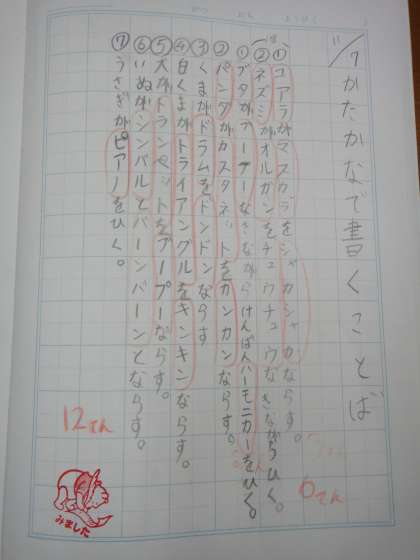 11/7 かたかなで書くことば
①コアラがマスカラをシャカシャカならす。
②ネズミがオルガンをチュウチュウなきながらひく。
①ブタがブーブーなきながらけんばんハーモニカーをひく。
②パンダがカスタネットをカンカンならす。
③くまがドラムをドンドンならす
④白くまがトライアングルをキンキンならす。
⑤犬がトランペットをプープーならす。
⑥いぬがシンバルをバーンバーンとならす。
⑦うさぎがピアノをひく。
6てん
12てん
みました